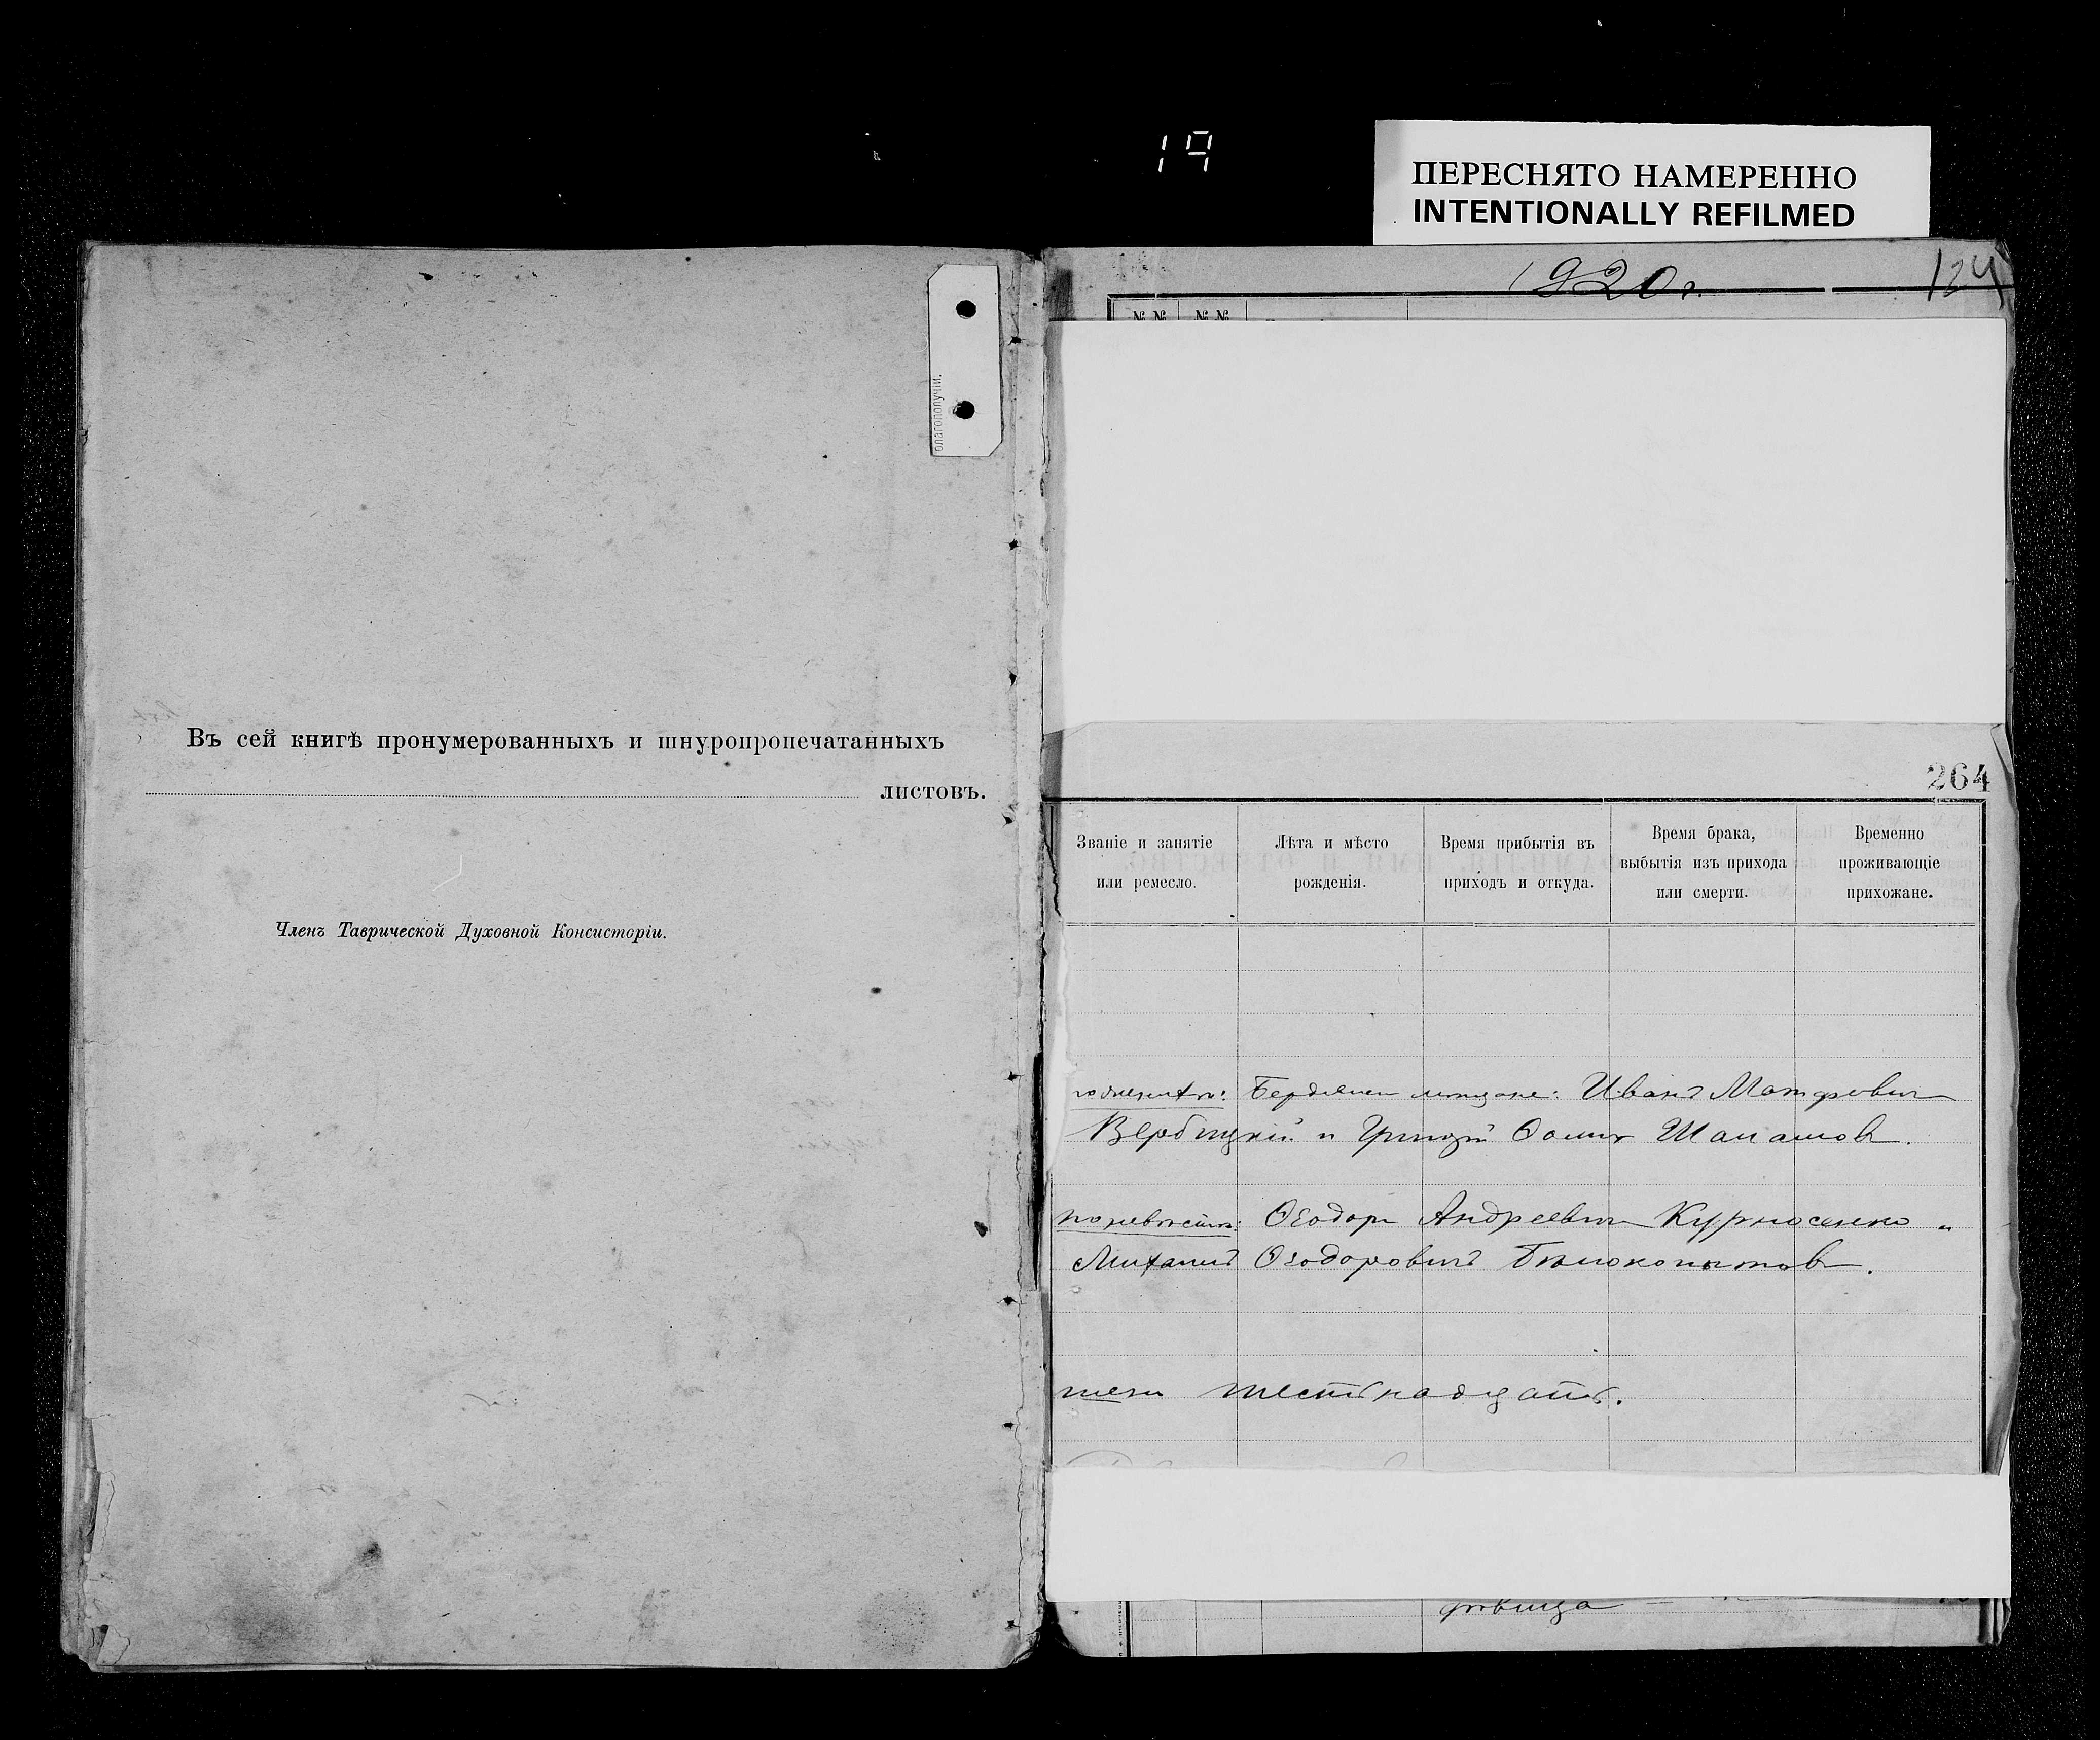 19
ПЕРЕСНЯТО НАМЕРЕННО
INTENTIONALLY REFILMED
благополучіи.
Въ сей книгѣ пронумерованныхъ и шнуропропечатанныхъ
листовъ.
Членъ Таврической Духовной Консисторіи.
1920 г.
124
№№ №№
264
Званіе и занятіе
или ремесло.
Лѣта и мѣсто
рожденія.
Время прибытія въ
приходъ и откуда.
Время брака,
выбытія изъ прихода
или смерти.
Временно
проживающіе
прихожане.
по женихѣ: Бердянск мещане: Иванъ Матфевич
Вербицкій и Ѳомич
по невѣстѣ: Ѳеодоръ Андреевич Курносенко и
Михаилъ Ѳеодоровичъ Бѣлокопытовъ.
шестнадцать.
дѣвица